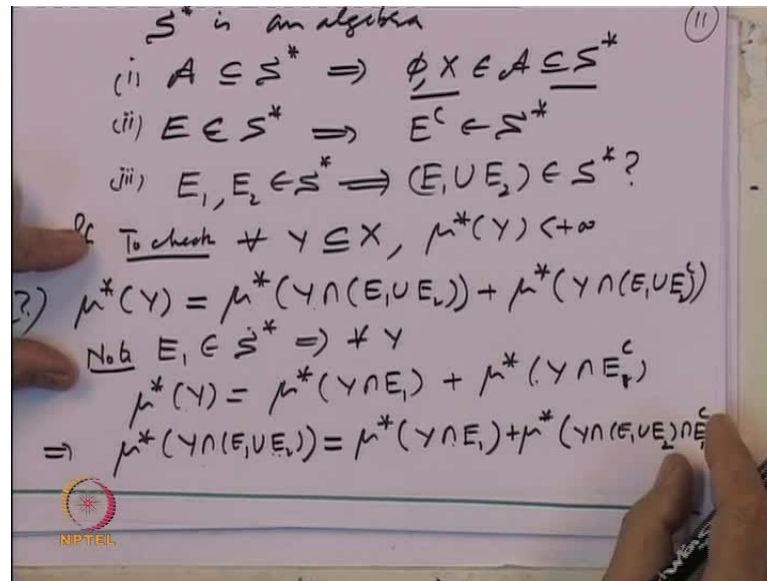 S* is an algebra
(11)
(i) A ⊆ S* ⇒ φ, X ∈ A ⊆ S*
(ii) E ∈ S* ⇒ E^c ∈ S*
(iii) E₁, E₂ ∈ S* ⇒ (E₁ ∪ E₂) ∈ S* ?
Pf To check ∀ Y ⊆ X, μ*(Y) < +∞
?) μ*(Y) = μ*(Y ∩ (E₁ ∪ E₂)) + μ*(Y ∩ (E₁ ∪ E₂)^c)
Note E₁ ∈ S* ⇒ ∀ Y
μ*(Y) = μ*(Y ∩ E₁) + μ*(Y ∩ E₁^c)
⇒ μ*(Y ∩ (E₁ ∪ E₂)) = μ*(Y ∩ E₁) + μ*(Y ∩ (E₁ ∪ E₂) ∩ E₁^c
NPTEL